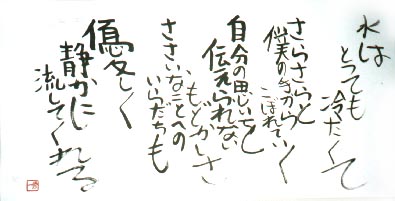 水は
とっても
冷たくて
さらさらと
僕の手から
こぼれていく
自分の思いを
伝えられない
もどかしさ
ささいなことへの
いらだちも
優しく
静かに
流してくれる